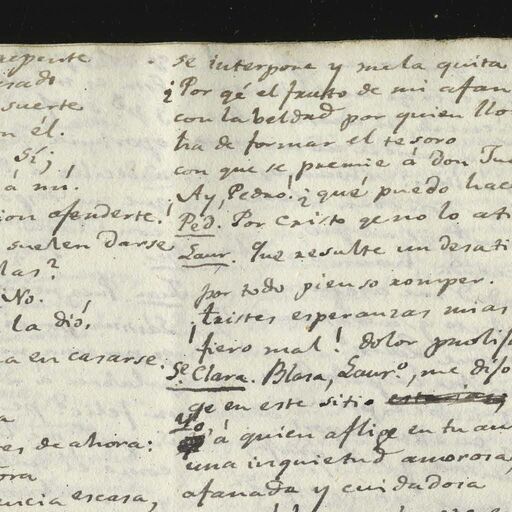 repente
suerte
n él.
Sí;
á mí.
ion ofenderte!
suelen darse
las?
No.
la dió!
a en casarse.
a
es de ahora:
ora
ncia escasa,
se interpone y me la quita
¿Por qé el frutto de mi afan
con la beldad por quien llo
ha de formar el tesoro
con que se premie á don Jua
Ay, Pedro! ¿que puedo hace
Ped. Por Cristo qe no lo ati
Laur. Que resulte un desati
por todo pienso romper.
¡tristes esperanzas mias
fiero mal! dolor prolijo
Se. Clara. Blasa, Lauro, me dijo
qe en este sitio
yo á quien aflige en tu au
una inquietud amorosa,
afanada y cuidadosa